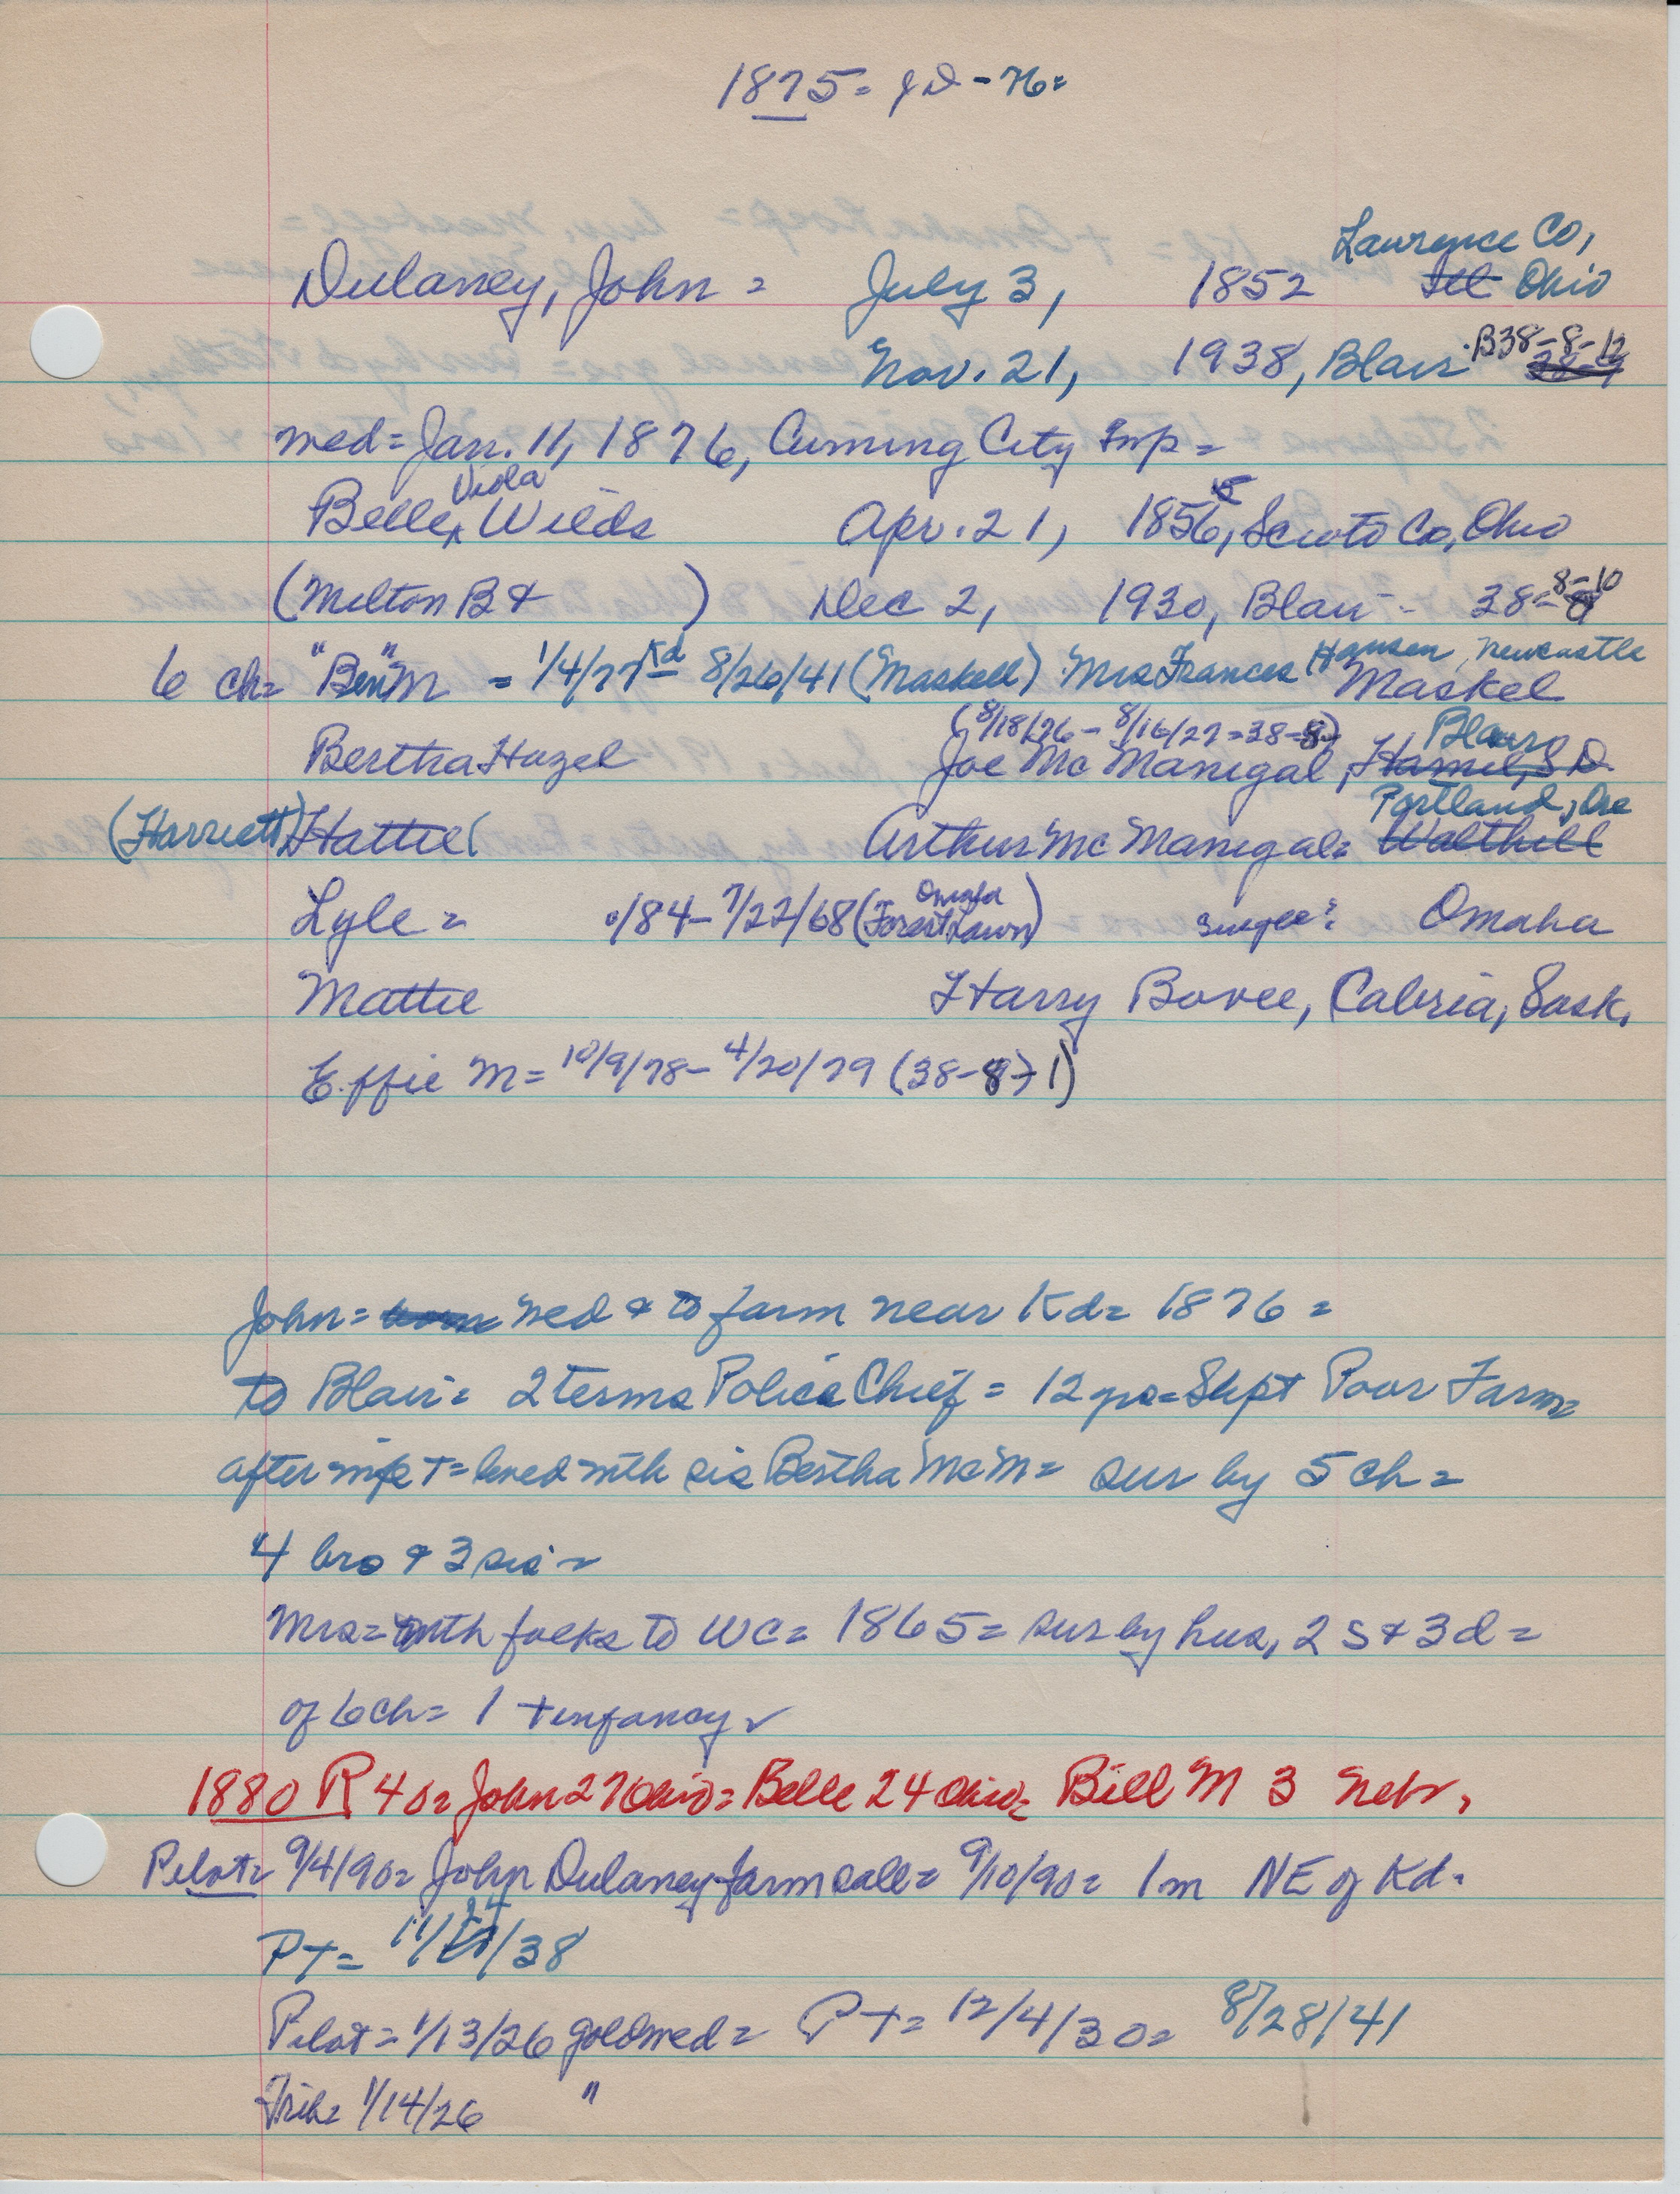 1875 = JD - 76 =
Lawrence Co,
Dulaney, John = July 3, 1852 Ill Ohio
Nov. 21, 1938, Blair B38-8-12
med = Jan. 11, 1876, Cuming City Twp =
Viola
Belle, Wilds Apr. 21, 1856, 5 Scioto Co, Ohio
(Milton B & ) Dec 2, 1930, Blair - 38-8-10
6 ch = "Ben" M = 1/4/77 Kd 8/26/41 (Maskell) Mrs Frances Hansen, Newcastle Maskel
(8/18/26 - 8/16/27 = 38-8) Blair
Bertha Hazel Joe McManigal, Hamil, S.D.
Portland, Ore
(Harriett) Hattie ( Arthur McManigal = Walthill
Lyle = /84 - 7/22/68 (Omaha Forest Lawn) single? Omaha
Mattie Harry Bovee, Cabria, Sask.
Effie M = 10/9/78 - 4/20/79 (38-8-1)
John = born med & to farm near Kd = 1876 =
to Blair = 2 terms Police Chief = 12 yrs = Supt Poor Farm =
after wife + = lived with sis Bertha McM = sur by 5 ch =
4 bro & 3 sis =
Mrs = with folks to WC = 1865 = sur by hus, 2 s & 3 d =
of 6 ch = 1 + infancy
1880 R 40 = John 27 Ohio = Belle 24 Ohio = Bill M 3 Nebr.
Pilot = 9/4/90 = John Dulaney farm sale = 9/10/90 = 1 m NE of Kd.
PT = 11/24/38
Pilot = 1/13/26 gold wed = PT = 12/4/30 = 8/28/41
Trib = 1/14/26 "